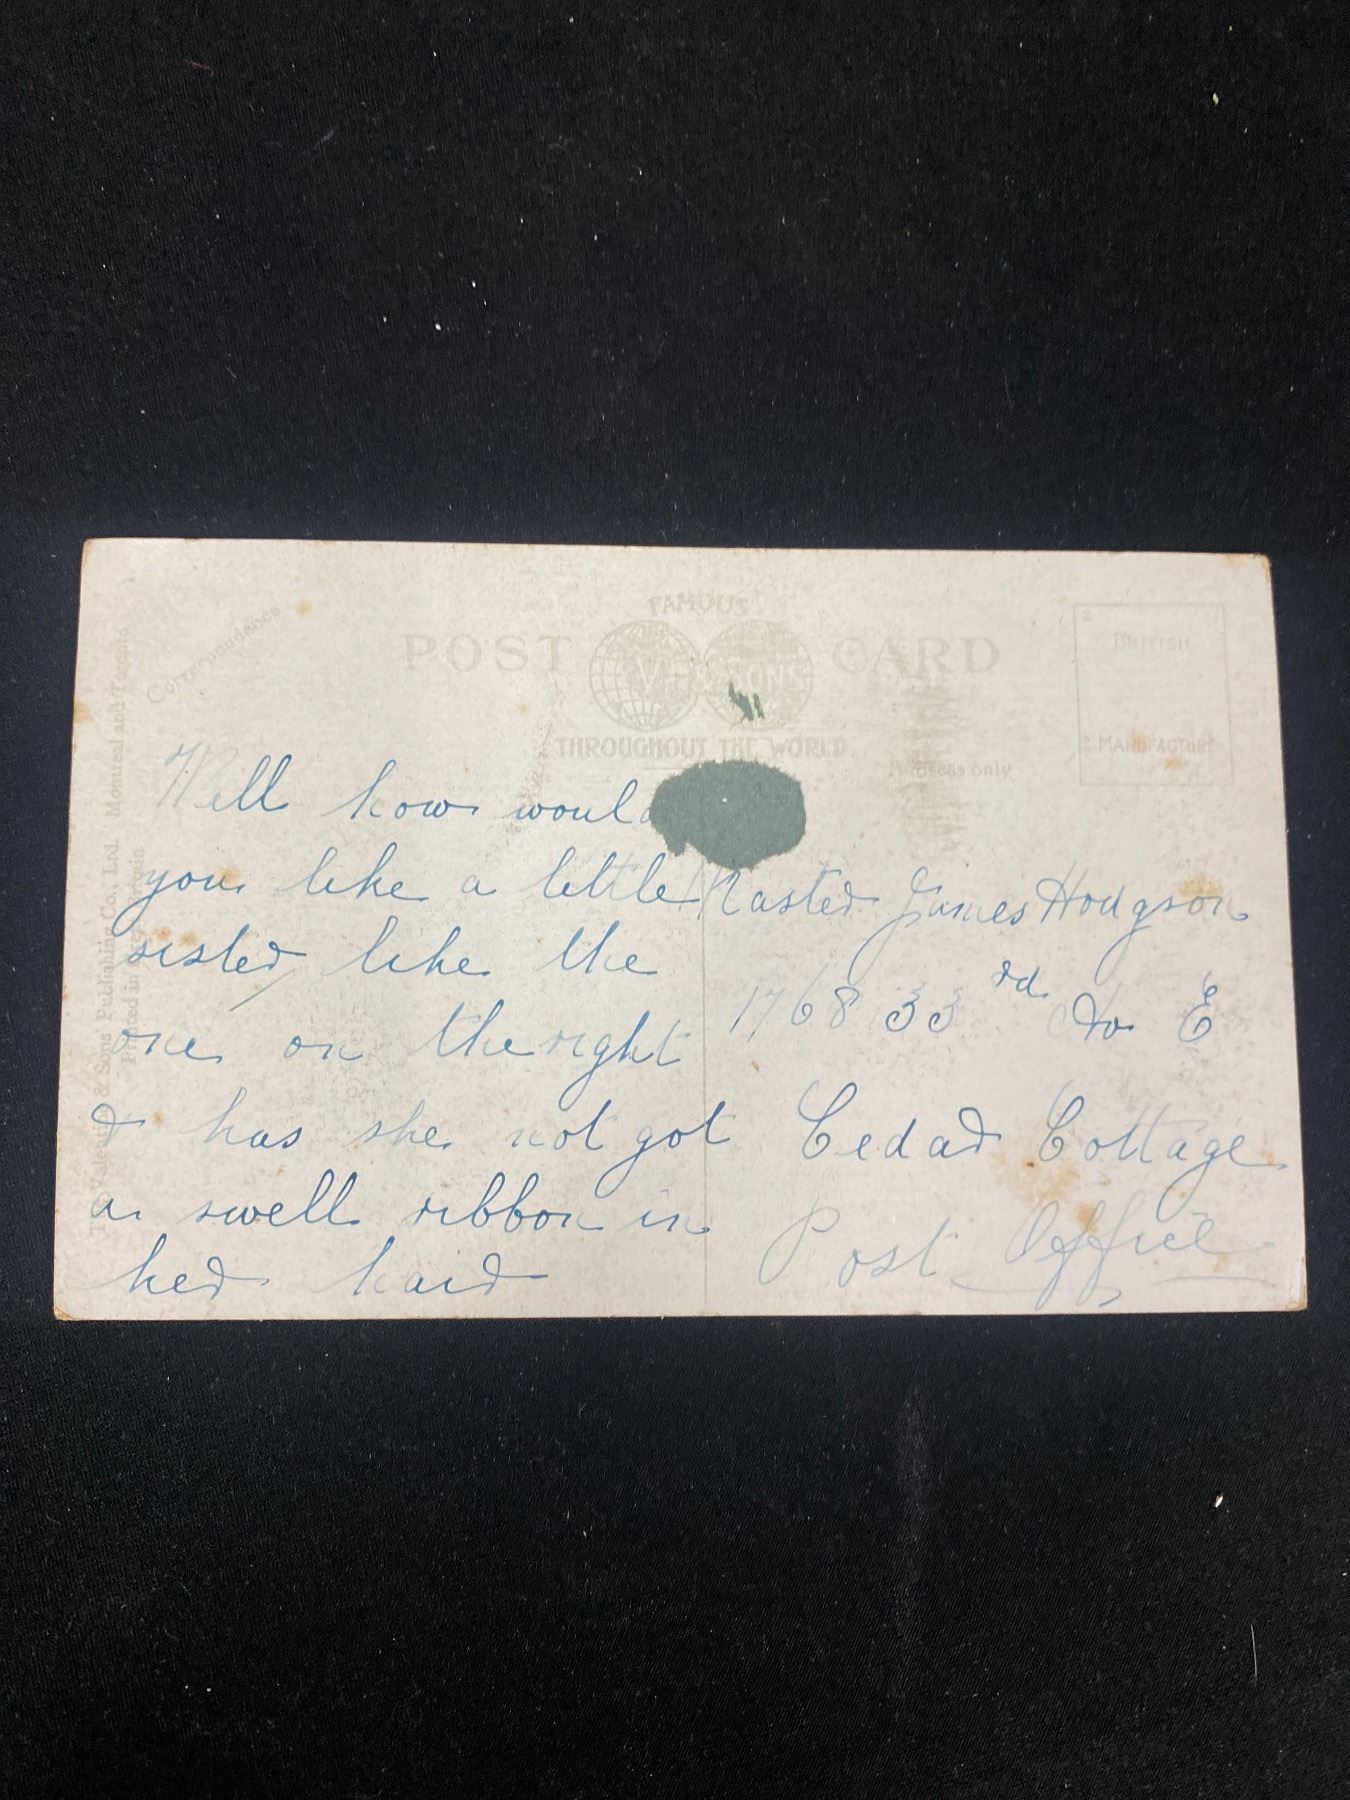 FAMOUS
POST CARD
V. & SONS
THROUGHOUT THE WORLD.
Correspondence
Address only
BRITISH
MANUFACTURE
Valentine & Sons Publishing Co., Ltd. Montreal and Toronto.
Printed in
Well how would
you like a little
sister like the
one on the right
& has she not got
a swell ribbon in
her hair
Master James Hodgson
1768 33 rd Av E
Cedar Cottage
Post Office